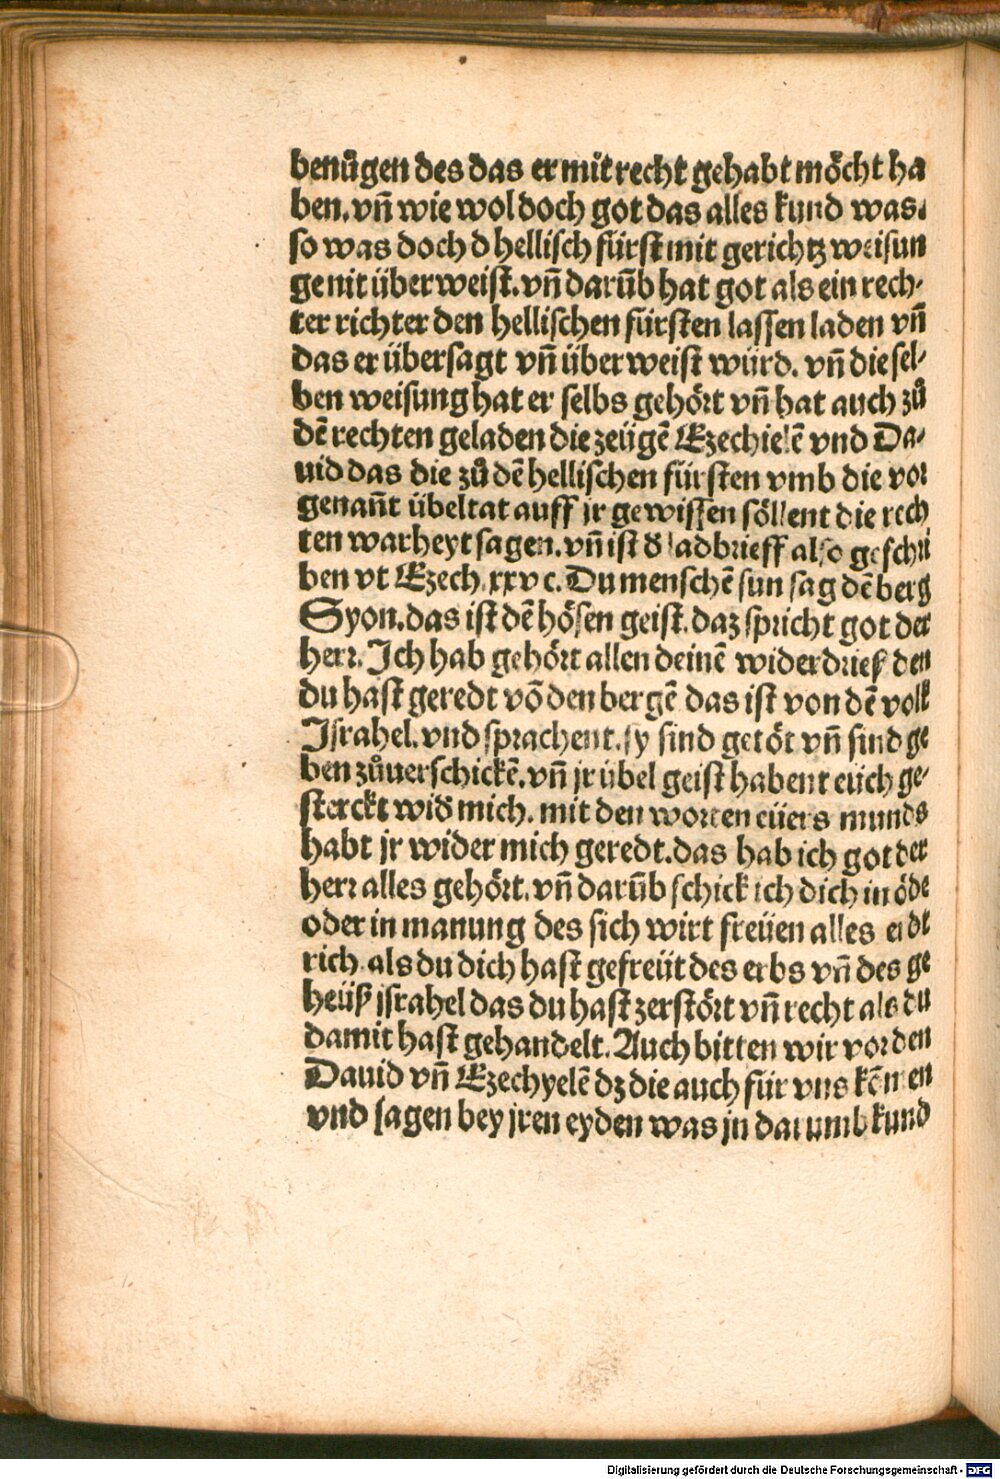 benůgen des das er mit recht gehabt möcht ha
ben. vñ wie wol doch got das alles kund was.
so was doch d hellisch fürst mit gerichtz weisun
ge nit überweist. vñ darũb hat got als ein rech⸗
ter richter den hellischen fürsten lassen laden vñ
das er übersagt vñ überweist würd. vñ die sel⸗
ben weisung hat er selbs gehört vñ hat auch zů
dē rechten geladen die zeügē Ezechielē vnd Da⸗
uid das die zů dē hellischen fürsten vmb die vor
genañt übeltat auff jr gewissen söllent die rech
ten warheyt sagen. vñ ist đ ladbrieff also geschri
ben vt Ezech. xxv c. Du menschē sun sag dē berg
Syon. das ist dē bösen geist. daz spricht got der
herr. Ich hab gehört allen deinē widerdrieß den
du hast geredt vō den bergē das ist von dē volk
Israhel. vnd sprachent. sy sind getöt vñ sind ge
ben zůuerschickē. vñ jr übel geist habent eüch ge⸗
sterckt wiđ mich. mit den worten eüers munds
habt jr wider mich geredt. das hab ich got der
herr alles gehört. vñ darũb schick ich dich in öde
oder in manung des sich wirt freüen alles erdt
rich. als du dich hast gefreüt des erbs vñ des ge
heüß jsrahel das du hast zerstört vñ recht als du
damit hast gehandelt. Auch bitten wir vor den
Dauid vñ Ezechyelē dz die auch für vns kēmen
vnd sagen bey jren eyden was jn darumb kund
Digitalisierung gefördert durch die Deutsche Forschungsgemeinschaft - DFG